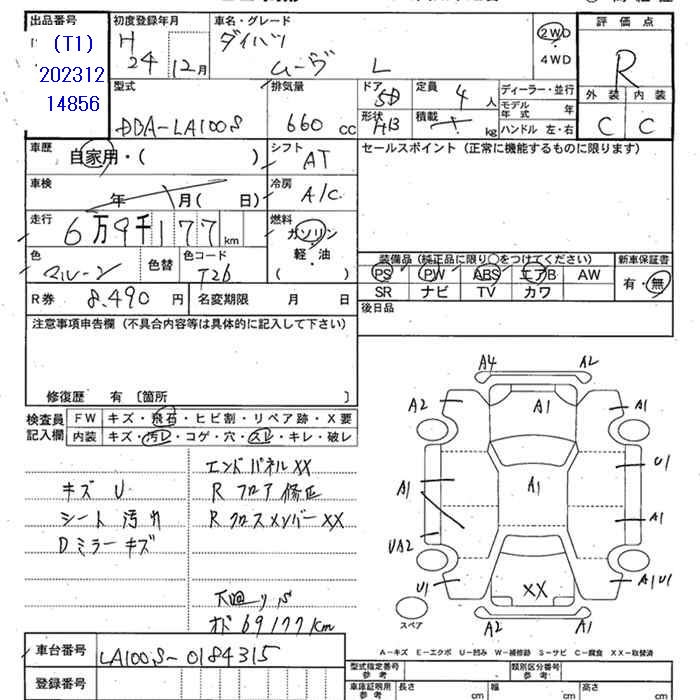 出品番号
(T1)
202312
14856
初度登録年月
H
24年12月
車名・グレード
ダイハツ
ムーヴ L
2WD
4WD
評価点
R
外装 内装
C C
型式
DBA-LA100S
排気量
660 cc
ドア
5D
形状
HB
定員
4人
積載
kg
ディーラー・並行
モデル年式 年
ハンドル 左・右
車歴
自家用・( )
シフト
AT
セールスポイント (正常に機能するものに限ります)
車検
年 月( 日)
冷房
A/C
走行
6万9千177km
燃料
ガソリン
軽・油
( )
色
マルーン
色替
色コード
T26
装備品 (純正品に限り○をつけてください)
PS PW ABS エアB AW
SR ナビ TV カワ
新車保証書
有・無
R券 8.490円
名変期限 月 日
後日品
注意事項申告欄 (不具合内容等は具体的に記入して下さい)
修復歴 有 〔箇所 〕
検査員記入欄
FW キズ・飛石・ヒビ割・リペア跡・X要
内装 キズ・汚レ・コゲ・穴・スレ・キレ・破レ
キズ U
シート 汚れ
Dミラーキズ
エンドパネルXX
R フロア 修正
R クロスメンバーXX
下廻りS
オド 69177km
A4 A2
A2 A1 A1
U1
A1 A1 A1
UA2
U1 XX A1U1
A2 A1
スペア
A-キズ E-エクボ U-凹み W-補修跡 S-サビ C-腐食 XX-取替済
車台番号
LA100S-0184315
登録番号
型式指定番号 類別区分番号
車庫証明用参考 長さ cm 幅 cm 高さ cm